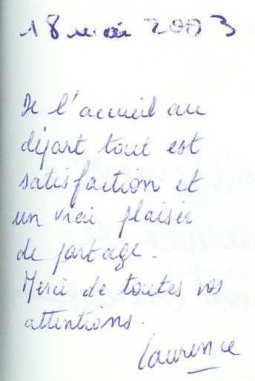 18 mai 2003
De l'accueil au
départ tout est
satisfaction et
un vrai plaisir
de partage.
Merci de toutes vos
attentions.
Laurence